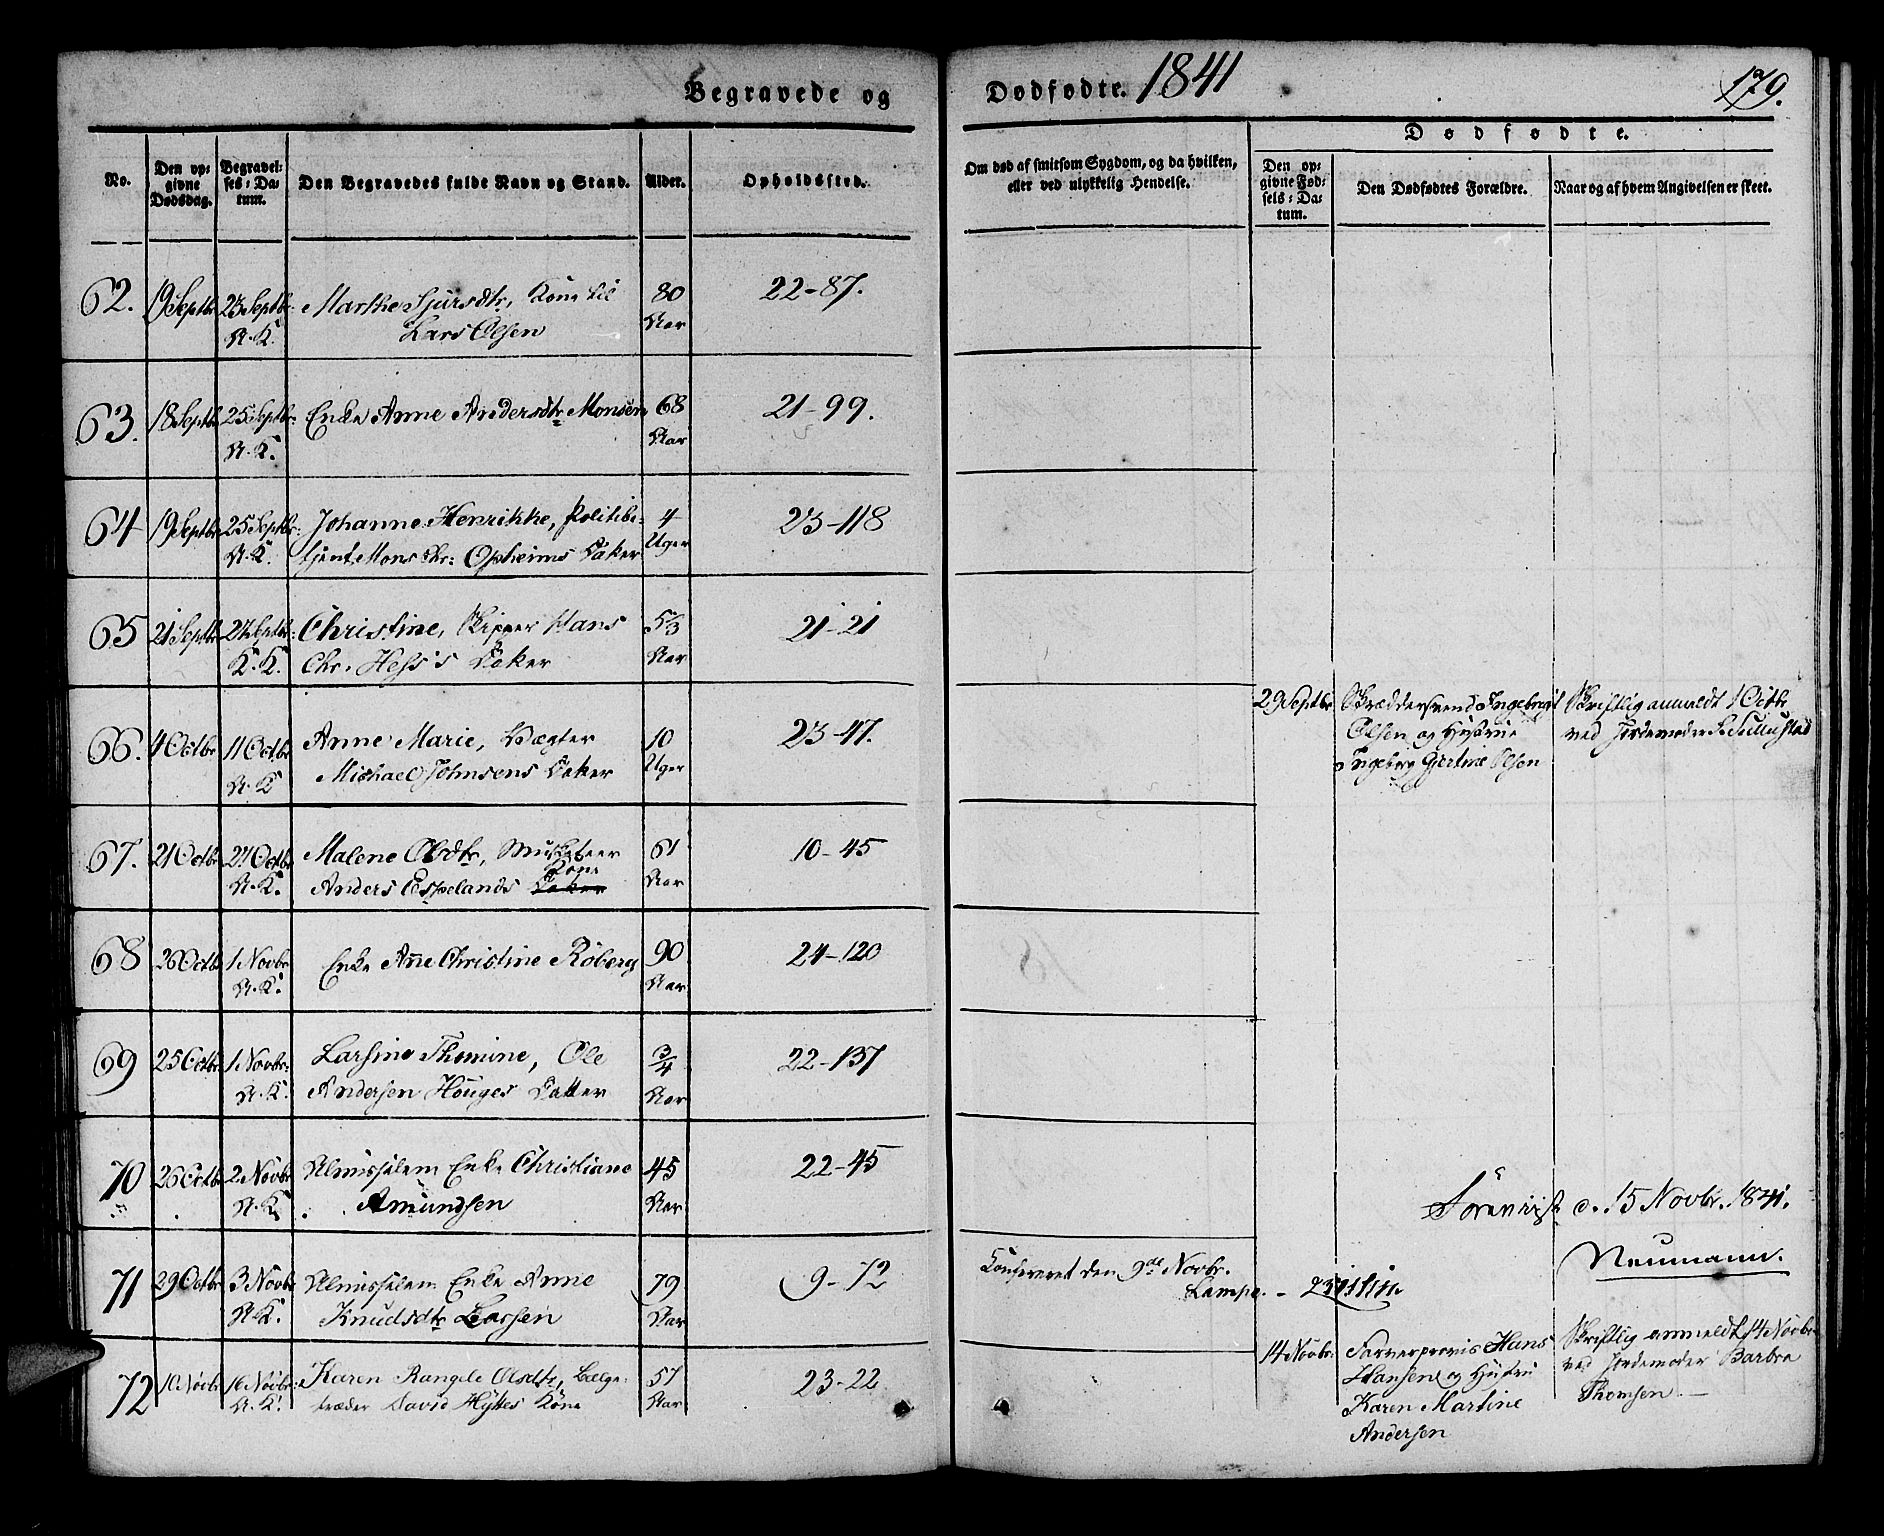 Begravede og
Dødfødte. 1841
179.
No.
Den op-
givne
Dødsdag.
Begravel-
ses-Da-
tum.
Den Begravedes fulde Navn og Stand.
Alder.
Opholdssted.
Om død af smitsom Sygdom, og da hvilken,
eller ved ulykkelig Hendelse.
Dødfødte.
Den op-
givne Fød-
sels-Da-
tum.
Den Dødfødtes Forældre.
Naar og af hvem Angivelsen er skeet.
62. 19 Septbr 23 Septbr: Marthe Sjursdtr, Kone til 80 22-87.
N. K. Lars Olsen Aar
63. 18 Septbr 25 Septbr: Enke Anne Andersdtr Monsen 68 21-99.
N. K. Aar
64 19 Septbr 25 Septbr: Johanne Henrikke, Politibe- 4 23-118
N. K. tjent Mons Chr: Opheims Datter Uger
65 21 Septbr 27 Septbr: Christine, Skipper Hans 5/3 21-21
K. K. Chr. Hess's Datter Aar
66. 4 Octbr 11 Octbr Anne Marie, Vægter 10 23-47.
N. K Michael Johnsens Datter Uger
29 Septbr Skræddersvend Ingebrigt Skriftlig anmeldt 1 Octbr
Olsen og Hustrue ved Jordemoder
Ingeborg Gjertine Olsen
67. 21 Octbr 27 Octbr Malene Olsdtr, Musketeer 61 10-45
Kone
N. K. Anders Espelands Datter Aar
68 26 Octb 1 Novbr Enke Anne Christine Roberg 90 24-120
N. K. Aar
69 25 Octbr 1 Novbr: Larsine Thomine, Ole 3/4 22-137
N. K. Andersen Houges Datter Aar
70 26 Octbr 2 Novbr Almisselem Enke Christiane 45 22-45
N. K. Amundsen Aar
d. 15 Novbr. 1841.
Neumann.
71 29 Octbr 3 Novbr Almisselem Enke Anne 79 9-72
N. K. Knudsdtr Larsen Aar
Confereret den 9de Novbr.
Lampe.
72 10 Novbr 16 Novbr: Karen Rangele Olsdtr, Bælge- 57 23-22
N. K. træder David Hyttes Kone Aar
14 Novbr: Farverprovis Hans Skriftlig anmeldt 14 Novbr
Hansen og Hustru ved Jordemoder Barbra
Karen Martine Thomsen.
Andersen